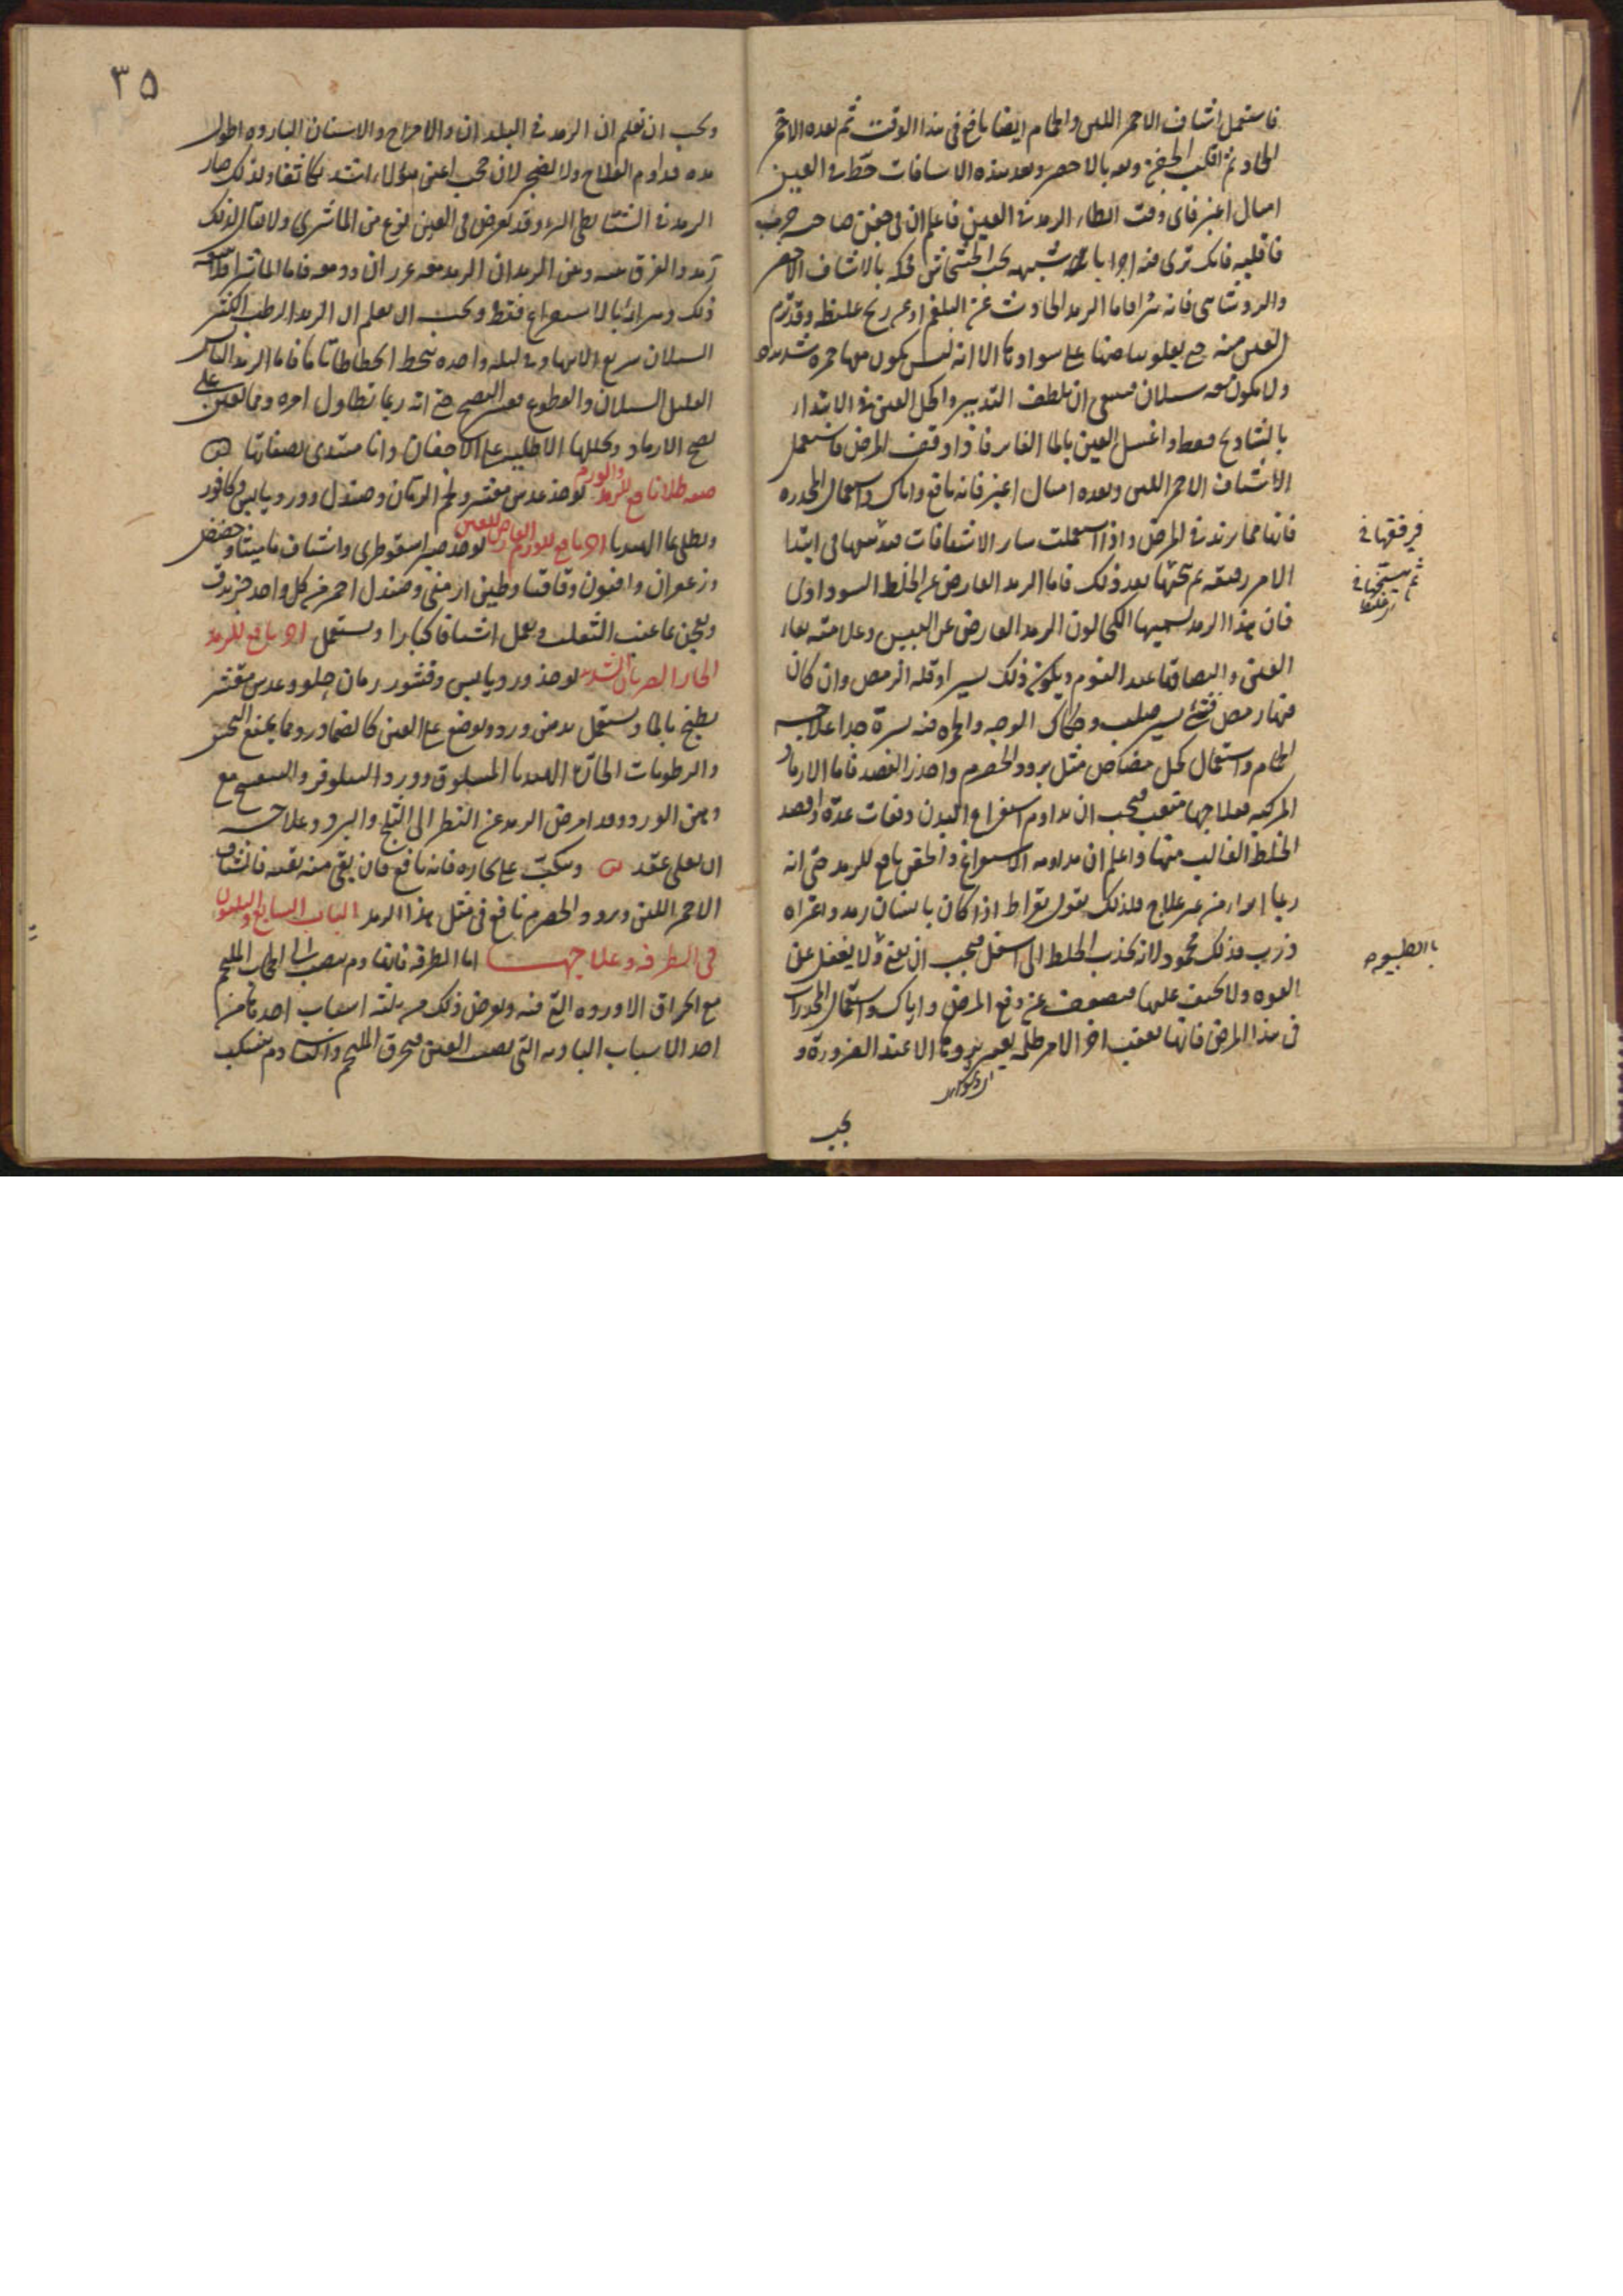 فاستعمل اشياف الاحمر اللين والحمام ايضا نافع فى هذا الوقت ثم بعده الاحمر
الحاد ثم اقلب الجفن وحكه بالاخضر وبعد هذه الاشيافات حط فى العين
اميال اغبر فاى وقت ابطاء الرمد فى العين فاعلم ان فى جفن صاحبه جرب
فاقلبه فانك ترى فيه اجرابا شبيهه بحب الخشخاش فحكه بالاشياف الاخضر
والروشنائى فانه يبرا فاما الرمد الحادث عن البلغم او عن ريح غليظ وقد ترم
العين منه حتى يعلو بياضها على سوادها الا انه ليس يكون معها حمره شديده
ولا يكون معه سيلان فينبغى ان تلطف التدبير واكحل العين فى الابتداء
بالشادنج فقط واغسل العين بالماء الفاتر فاذا وقف المرض فاستعمل
الاشياف الاحمر اللين وبعده اميال اغبر فانه نافع واياك واستعمال المخدره
فانها مما يزيد فى المرض واذا استعملت ساير الاشيافات فدفها فى ابتدا
الامر رقيقه ثم ثخنها بعد ذلك فاما الرمد العارض عن الخلط السوداوى
فان هذا الرمد يسميها الكحالون الرمد العارض عن اليبس وعلامته بقاء
العين والتصاقها عند النوم ويكون ذلك يسيرا وقله الرمص وان كان
فيها رمص فشئ يسير صلب وحكاك الوجه والحمره فيه يسيرة جدا علاجه
الحمام واستعمال كحل مضاض مثل برود الحصرم واحذر الفصد فاما الارماد
المركبه فعلاجها متعب فيجب ان تداوم استفراغ البدن دفعات عدة واقصد
الخلط الغالب منها واعلم ان مداومه الاستفراغ والحقن نافع للرمد حتى انه
ربما ابرا من غير علاج فلذلك يقول بقراط اذا كان بانسان رمد واعتراه
ذرب فذلك محمود لانه يجذب الخلط الى اسفل فيجب ان تعنى ولا تغفل عن
القوه ولا تحيف عليها فتضعف عن دفع المرض واياك واستعمال المخدرات
فى هذا المرض فانها تعقب اخر الامر ظلمه يعسر بروها الا عند الضرورة و
يجب
فرفقها فى
باالطبيعه
٣٥
ويجب ان تعلم ان الرمد فى البلدان والامزاج والاسنان البارده اطول
مده فداوم العلاج ولا تضجر لان حجب اعين هؤلاء اشد تكاثفا ولذلك صار
الرمد فى الشتا بطى البرء وقد يعرض فى العين نوع من الماشرى ولا يقال لذلك
رمد والفرق بينه وبين الرمد ان الرمد معه غرزان ودمعه فاما الماشرا فلا معه
ذلك وبراءته بالاستفراغ فقط ويجب ان تعلم ان الرمد الرطب الكثير
السيلان سريع الانتهاء وفى ليله واحده ينحط انحطاطا تاما فاما الرمد اليابس
القليل السيلان والدموع فعسر النضج حتى انه ربما تطاول امره ومما يعين على
نضج الارماد وتحليلها الاطليه على الاجفان وانا مبتدى بصفاتها
صفه طلا نافع للرمد والورم يوخذ عدس مقشر ولحم الرمان وصندل وورد يابس وكافور
ويطلى بماء الهندبا اخر نافع للورم العارض للعين يوخذ صبر اسقوطرى واشياف ماميثا وحضض
وزعفران وافيون وقاقيا وطين ارمنى وصندل احمر من كل واحد جزء يدق
ويعجن بماء عنب الثعلب ويعمل اشيافا كبارا ويستعمل اخر نافع للرمد
الحار الضربان الشديد يوخذ ورد يابس وقشور رمان حلو وعدس مقشر
يطبخ بالماء ويستعمل بدهن ورد ويوضع على العين كالضماد ومما يمنع التحير
والرطوبات الحارة الهندبا المسلوق وورد النيلوفر والبنفسج مع
دهن الورد وقد يعرض الرمد عن النظر الى الثلج والبرد وعلاجه
ان يغلى عقد تبن وينكب على بخاره فانه نافع فان بقى منه بقيه فاشياف
الاحمر اللين وبرود الحصرم نافع فى مثل هذا الرمد الباب السابع والستون
فى الطرفه وعلاجها اما الطرفه فانها دم ينصب الى الحجاب الملتحم
مع انخراق الاورده التى فيه ويعرض ذلك من ثلثه اسباب احدها من
احد الاسباب الباديه التى تصيب العين فيخرق الملتحم وايضا دم ينسكب